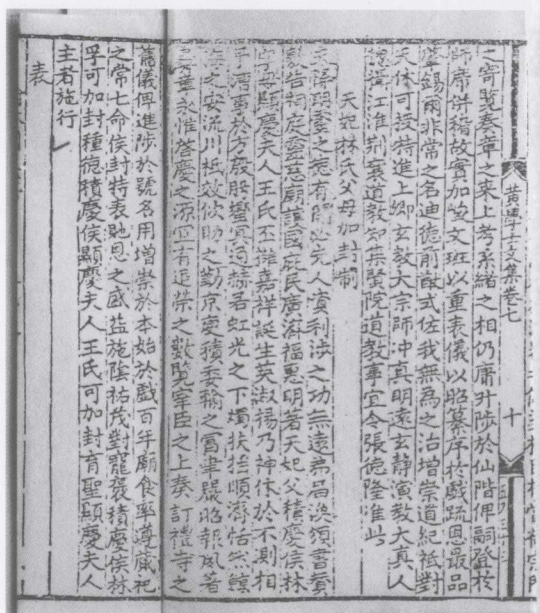 黄學士文集卷七
十
之寄覽奏章之来上考系緒之相仍庸升陟於仙階俾嗣登於
師席併稽故實加 文班以重表儀以昭纂序於戲疏恩最品
肇錫爾非常之名迪德前猷式佐我無為之治增崇道紀祗對
天休可授特進上卿玄教大宗師冲真明遠玄静演教大真人
江淮荆襄道教知集賢院道教事宜令張德隆准此
天妃林氏父母加封制
之功無遠弗届渙頒書
告祠庭靈慈廟護國庇民廣濟福惠明著天妃父積慶侯林
孚母顯慶夫人王氏丕 嘉祥誕生英淑揚乃神休於不測相
予漕事於方殷肸蠁冥通赫若虹光之下燭扶持順濟恬然鯨
海之安流川祗效 助之勤京庾積委輸之富聿嚴昭報夙著
褒章永惟啓慶之源宜有追榮之數覽宰臣之上奏訂禮寺之
舊儀俾進陟於號名用增崇於本始於戲百年廟食率遵蕆祀
之常七命侯封特表貤恩之盛益施陰祐茂對寵褒積慶侯林
孚可加封種德積慶侯顯慶夫人王氏可加封育聖顯慶夫人
主者施行
表